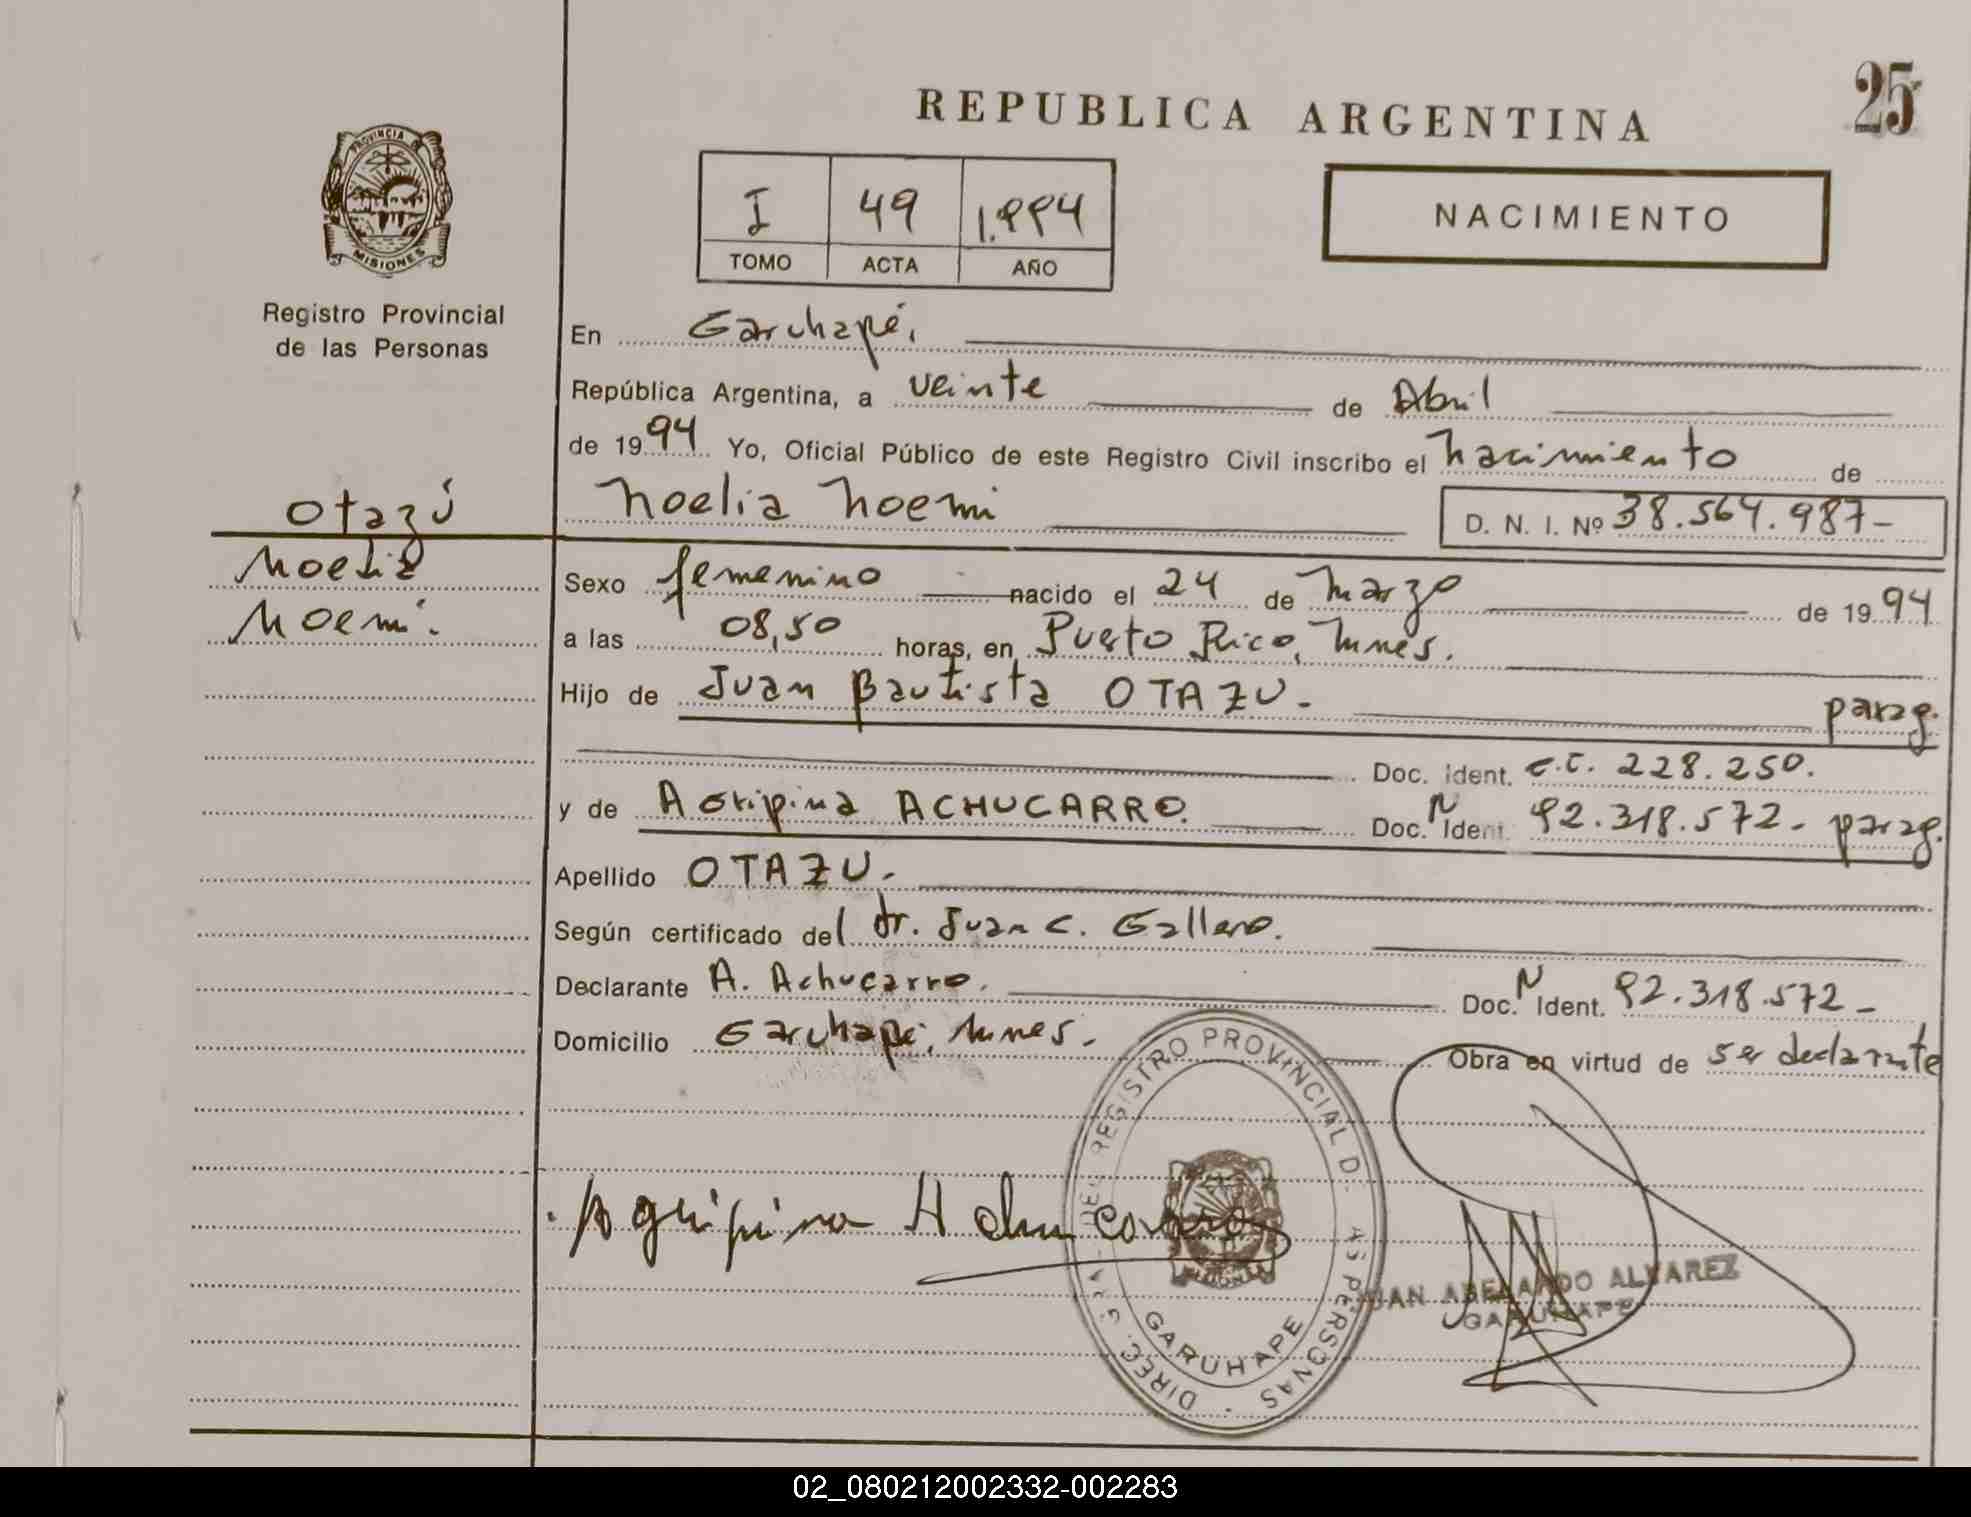 REPUBLICA ARGENTINA
25
PROVINCIA DE
MISIONES
Registro Provincial
de las Personas
I 49 1.994
TOMO ACTA AÑO
NACIMIENTO
En Garuhapé,
República Argentina, a veinte de Abril
de 1994 Yo, Oficial Público de este Registro Civil inscribo el nacimiento de
Noelia Noemi D. N. I. Nº 38.564.987-
Otazú
Noelia
Noemi.
Sexo femenino nacido el 24 de Marzo de 1994
a las 08,50 horas, en Puerto Rico, Mnes.
Hijo de Juan Bautista OTAZU. parag.
Doc. Ident. C.I. 228.250.
y de Agripina ACHUCARRO. Doc. N Ident. 92.318.572- parag.
Apellido OTAZU.
Según certificado del dr. Juan C. Gallero.
Declarante A. Achucarro. Doc. N Ident. 92.318.572-
Domicilio Garuhapé, Mnes. Obra en virtud de ser declarante
Agripina Achucarro
REGISTRO PROVINCIAL D. AS PERSONAS
GARUHAPE
JUAN ABELARDO ALVAREZ
GARUHAPE
02_080212002332-002283